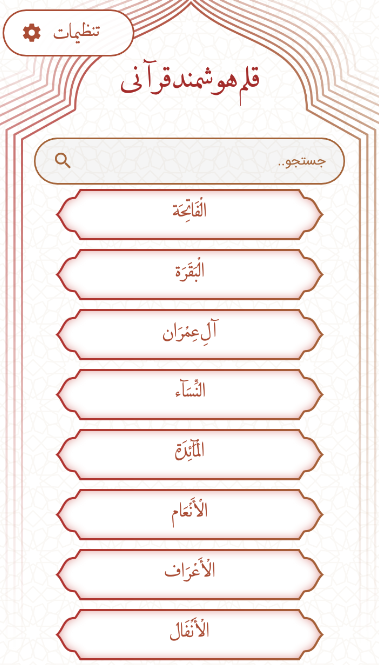 تنظیمات
قلم هوشمند قرآنی
جستجو..
الْفَاتِحَة
الْبَقَرَة
آل عِمْرَان
النِّسَآء
الْمَآئِدَة
الْأَنْعَام
الْأَعْرَاف
الْأَنْفَال